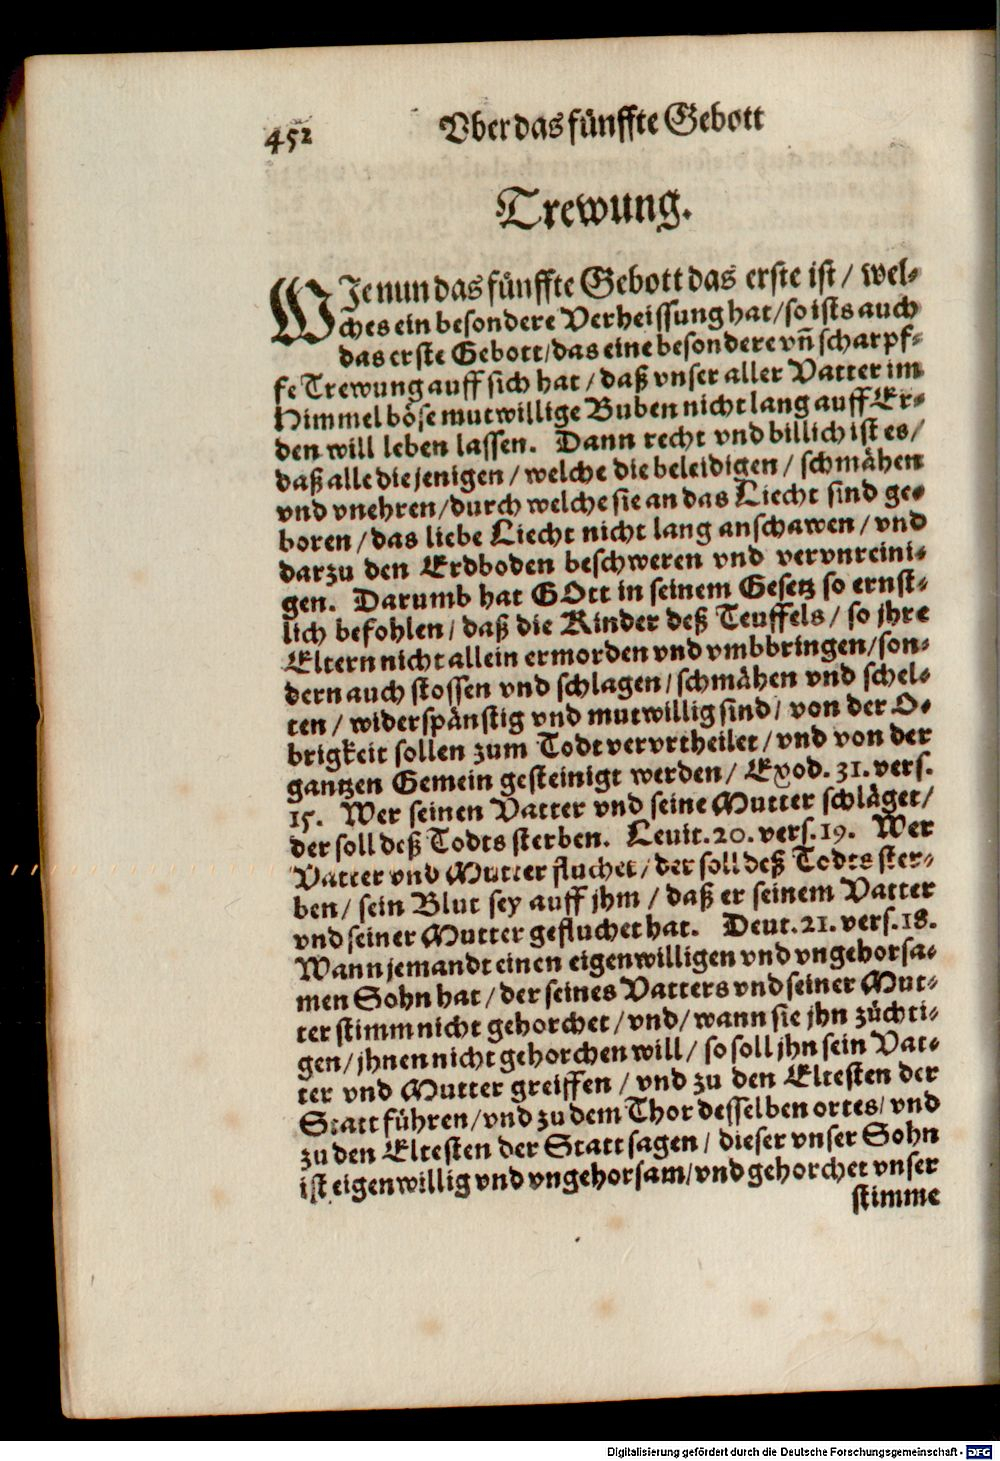 452 Vber das fünffte Gebott
Trewung.
WJe nun das fünffte Gebott das erste ist / wel-
ches ein besondere Verheissung hat / so ists auch
das erste Gebott / das eine besondere vñ scharpf-
fe Trewung auff sich hat / daß vnser aller Vatter im
Himmel böse mutwillige Buben nicht lang auff Er-
den will leben lassen. Dann recht vnd billich ist es /
daß alle die jenigen / welche die beleidigen / schmähen
vnd vnehren / durch welche sie an das Liecht sind ge-
boren / das liebe Liecht nicht lang anschawen / vnd
darzu den Erdboden beschweren vnd vervnreini-
gen. Darumb hat GOtt in seinem Gesetz so ernst-
lich befohlen / daß die Kinder deß Teuffels / so jhre
Eltern nicht allein ermorden vnd vmbbringen / son-
dern auch stossen vnd schlagen / schmähen vnd schel-
ten / widerspänstig vnd mutwillig sind / von der O-
brigkeit sollen zum Todt vervrtheilet / vnd von der
gantzen Gemein gesteinigt werden / Exod. 31. vers.
15. Wer seinen Vatter vnd seine Mutter schläget /
der soll deß Todts sterben. Levit. 20. vers. 19. Wer
Vatter vnd Mutter fluchet / der soll deß Todts ster-
ben / sein Blut sey auff jhm / daß er seinem Vatter
vnd seiner Mutter gefluchet hat. Deut. 21. vers. 18.
Wann jemandt einen eigenwilligen vnd vngehorsa-
men Sohn hat / der seines Vatters vnd seiner Mut-
ter stimm nicht gehorchet / vnd / wann sie jhn züchti-
gen / jhnen nicht gehorchen will / so soll jhn sein Vat-
ter vnd Mutter greiffen / vnd zu den Eltesten der
Statt führen / vnd zu dem Thor desselben ortes / vnd
zu den Eltesten der Statt sagen / dieser vnser Sohn
ist eigenwillig vnd vngehorsam / vnd gehorchet vnser
stimme
Digitalisierung gefördert durch die Deutsche Forschungsgemeinschaft - DFG